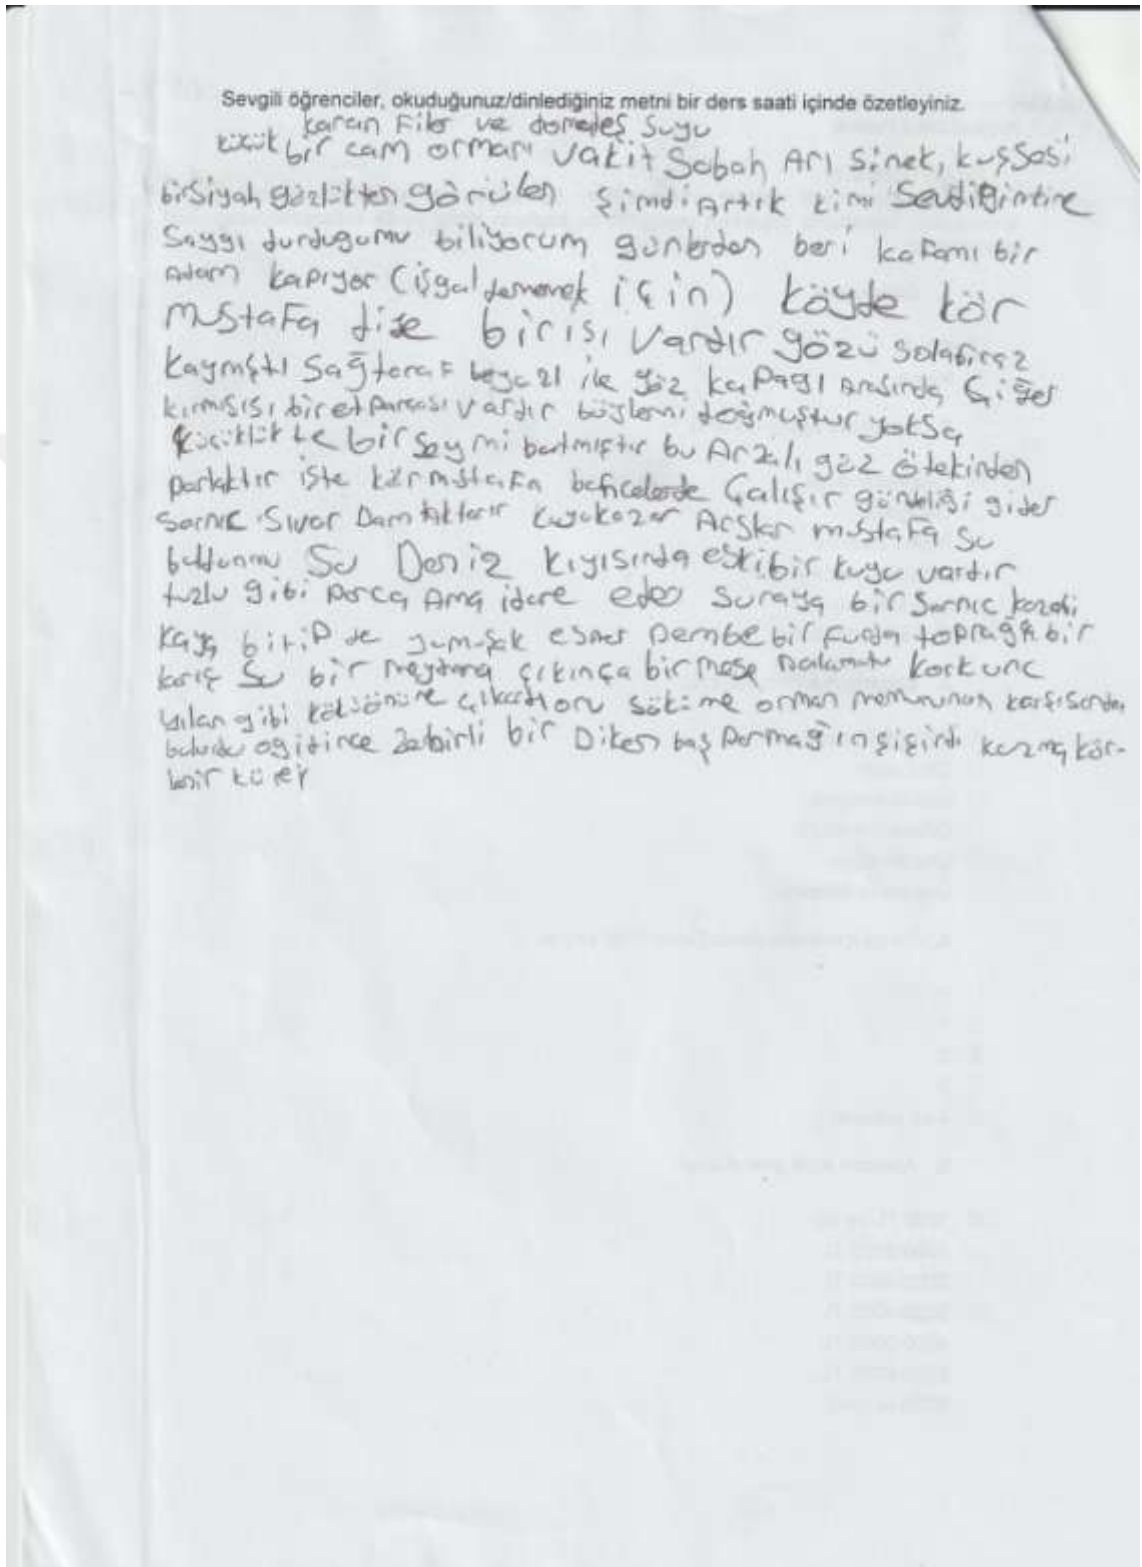 Sevgili öğrenciler, okuduğunuz/dinlediğiniz metni bir ders saati içinde özetleyiniz.
karan Filr ve domates Suyu
küçük bir cam ormanı vakit Sabah Arı Sinek, kuşSesi
birSiyah gözlükten görülen Şimdi Artık kimi Sevdiğimi
Saygı durduğumu biliyorum günlerden beri kafamı bir
Adam kapıyor (işgal dememek için) köyde kör
mustaFa diye birisi vardır gözü sola biraz
kaymıştı Sağ taraF beyazı ile göz kapağı Arasında Ciğer
kırmısısı bir et Parçası vardır böylemi doğmuştur yoksa
küçüklükte bir Şey mi batmıştır bu Arzalı göz ötekinden
parlaktır işte kör mustaFa bahcelerde Çalışır gündeliği gider
Sarnıc Sıvar Dam Aktarır kuyu kazar mustaFa Su
buldunmu Su Deniz kıyısında eski bir kuyu vardır
tuzlu gibi Ama idare eder Suraya bir Sarnıc
kaya bitip de yumuşak esmer Pembe bir Funda toprağı bir
karış Su bir meydana çıkınça bir meşe korkunc
yılan gibi kökü önüne orman memurunun karşısında
zehirli bir Diken baş Parmağın Şişirdi kazma kör-
bir kürek